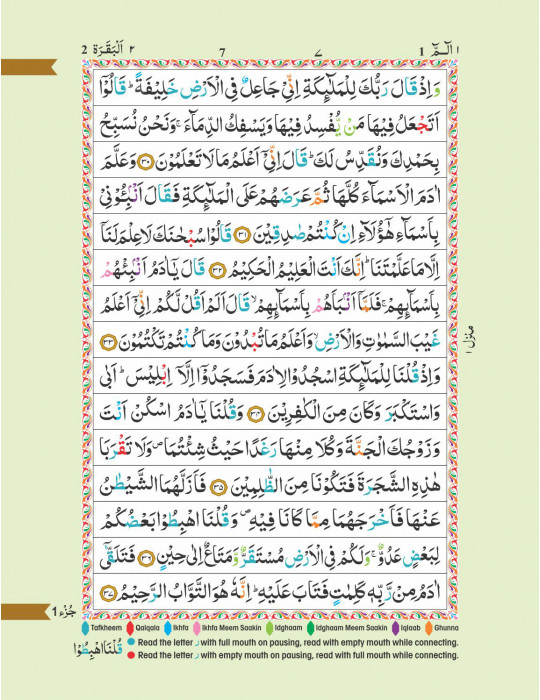 ا الٓـمّٓ 1 ٧ 7 ٢ اَلْبَقَرَة 2
وَاِذْ قَالَ رَبُّكَ لِلْمَلٰٓئِكَةِ اِنِّىْ جَاعِلٌ فِى الْاَرْضِ خَلِيْفَةً ؕ قَالُوْٓا
اَتَجْعَلُ فِيْهَا مَنْ يُّفْسِدُ فِيْهَا وَيَسْفِكُ الدِّمَآءَ ۚ وَنَحْنُ نُسَبِّحُ
بِحَمْدِكَ وَنُقَدِّسُ لَكَ ؕ قَالَ اِنِّىْٓ اَعْلَمُ مَا لَا تَعْلَمُوْنَ ۝٣٠ وَعَلَّمَ
اٰدَمَ الْاَسْمَآءَ كُلَّهَا ثُمَّ عَرَضَهُمْ عَلَى الْمَلٰٓئِكَةِ فَقَالَ اَنْۢبِـُٔوْنِىْ
بِاَسْمَآءِ هٰٓؤُلَآءِ اِنْ كُنْتُمْ صٰدِقِيْنَ ۝٣١ قَالُوْا سُبْحٰنَكَ لَا عِلْمَ لَنَآ
اِلَّا مَا عَلَّمْتَنَا ؕ اِنَّكَ اَنْتَ الْعَلِيْمُ الْحَكِيْمُ ۝٣٢ قَالَ يٰٓاٰدَمُ اَنْۢبِئْهُمْ
بِاَسْمَآئِهِمْ ۚ فَلَمَّآ اَنْۢبَاَهُمْ بِاَسْمَآئِهِمْ ۙ قَالَ اَلَمْ اَقُلْ لَّكُمْ اِنِّىْٓ اَعْلَمُ
غَيْبَ السَّمٰوٰتِ وَالْاَرْضِ ۙ وَاَعْلَمُ مَا تُبْدُوْنَ وَمَا كُنْتُمْ تَكْتُمُوْنَ ۝٣٣
وَاِذْ قُلْنَا لِلْمَلٰٓئِكَةِ اسْجُدُوْا لِاٰدَمَ فَسَجَدُوْٓا اِلَّآ اِبْلِيْسَ ؕ اَبٰى
وَاسْتَكْبَرَ ۫ وَكَانَ مِنَ الْكٰفِرِيْنَ ۝٣٤ وَقُلْنَا يٰٓاٰدَمُ اسْكُنْ اَنْتَ
وَزَوْجُكَ الْجَنَّةَ وَكُلَا مِنْهَا رَغَدًا حَيْثُ شِئْتُمَا ۪ وَلَا تَقْرَبَا
هٰذِهِ الشَّجَرَةَ فَتَكُوْنَا مِنَ الظّٰلِمِيْنَ ۝٣٥ فَاَزَلَّهُمَا الشَّيْطٰنُ
عَنْهَا فَاَخْرَجَهُمَا مِمَّا كَانَا فِيْهِ ۪ وَقُلْنَا اهْبِطُوْا بَعْضُكُمْ
لِبَعْضٍ عَدُوٌّ ۚ وَلَكُمْ فِى الْاَرْضِ مُسْتَقَرٌّ وَّمَتَاعٌ اِلٰى حِيْنٍ ۝٣٦ فَتَلَقّٰٓى
اٰدَمُ مِنْ رَّبِّهٖ كَلِمٰتٍ فَتَابَ عَلَيْهِ ؕ اِنَّهٗ هُوَ التَّوَّابُ الرَّحِيْمُ ۝٣٧
منزل ١
جُزْء 1
Tafkheem Qalqala Ikhfa Ikhfa Meem Saakin Idghaam Idghaam Meem Saakin Iqlaab Ghunna
قُلْنَا اهْبِطُوْا
Read the letter ر with full mouth on pausing, read with empty mouth while connecting.
Read the letter ر with empty mouth on pausing, read with full mouth while connecting.